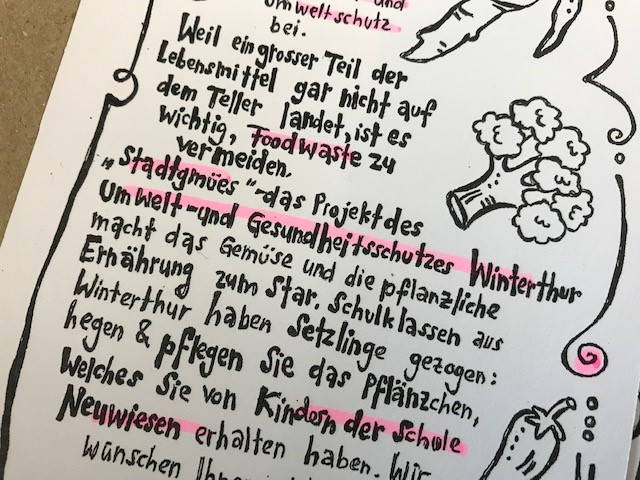 und
Umweltschutz
bei.
Weil ein grosser Teil der
Lebensmittel gar nicht auf
dem Teller landet, ist es
wichtig, Foodwaste zu
vermeiden.
„Stadtgmües"-das Projekt des
Umwelt-und Gesundheitsschutzes Winterthur
macht das Gemüse und die pflanzliche
Ernährung zum Star. Schulklassen aus
Winterthur haben Setzlinge gezogen:
hegen & pflegen Sie das Pflänzchen,
Welches Sie von Kindern der Schule
Neuwiesen erhalten haben. Wir
wünschen Ihnen